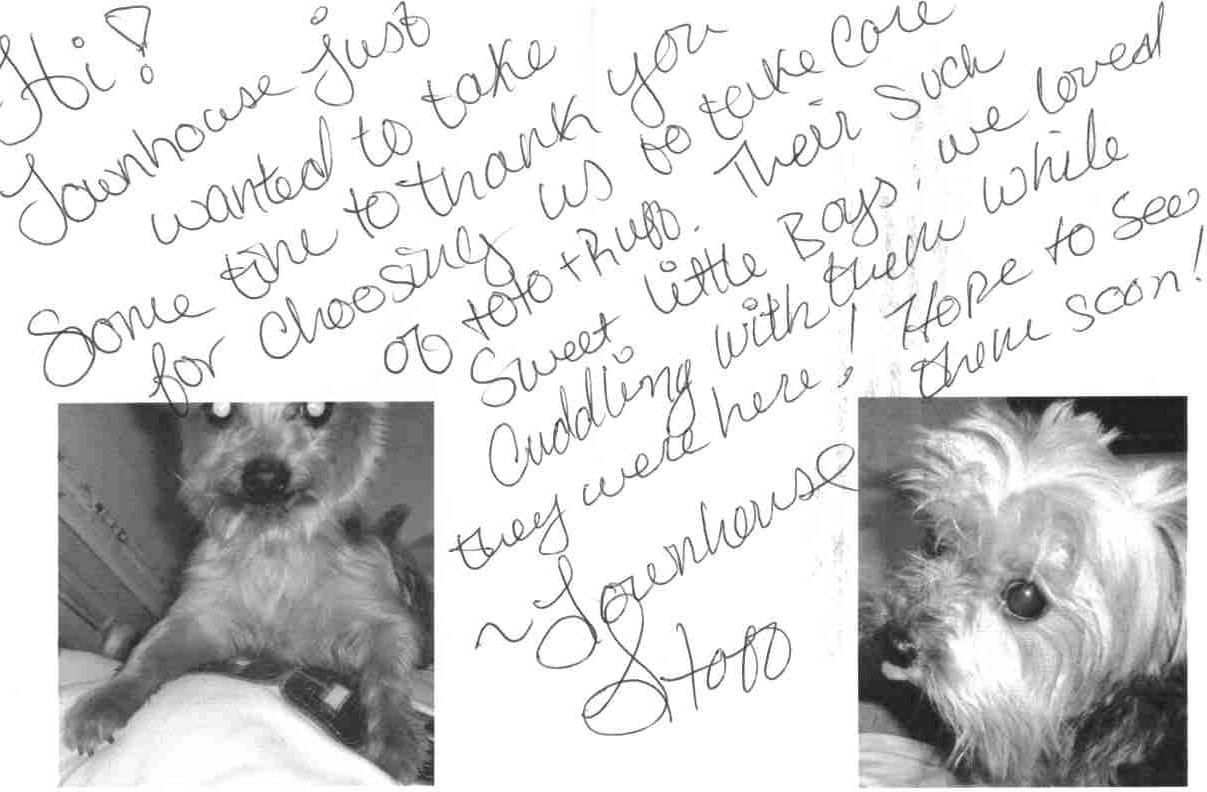 Hi!
Townhouse just
wanted to take
Some time to thank you
for choosing us to take care
of toto + Ruff. Their such
Sweet little Boys. we loved
Cuddling with them while
they were here! Hope to see
them soon!
~Townhouse
Staff